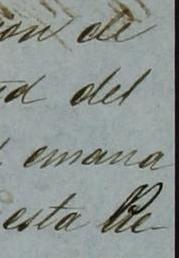 ion de
d del
emana
esta Re-